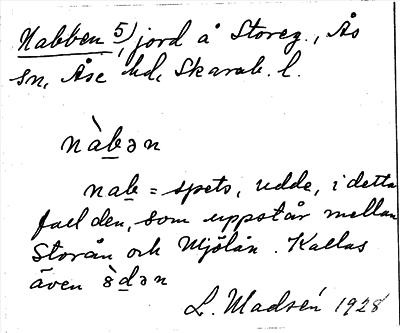 Nabben 5), jord å Storeg., Ås
sn, Åse hd, Skarab. l.
nàbən
nab = spets, udde, i detta
fall den, som uppstår mellan
Storån och Mjölån. Kallas
även ùdən
L. Madsén 1928